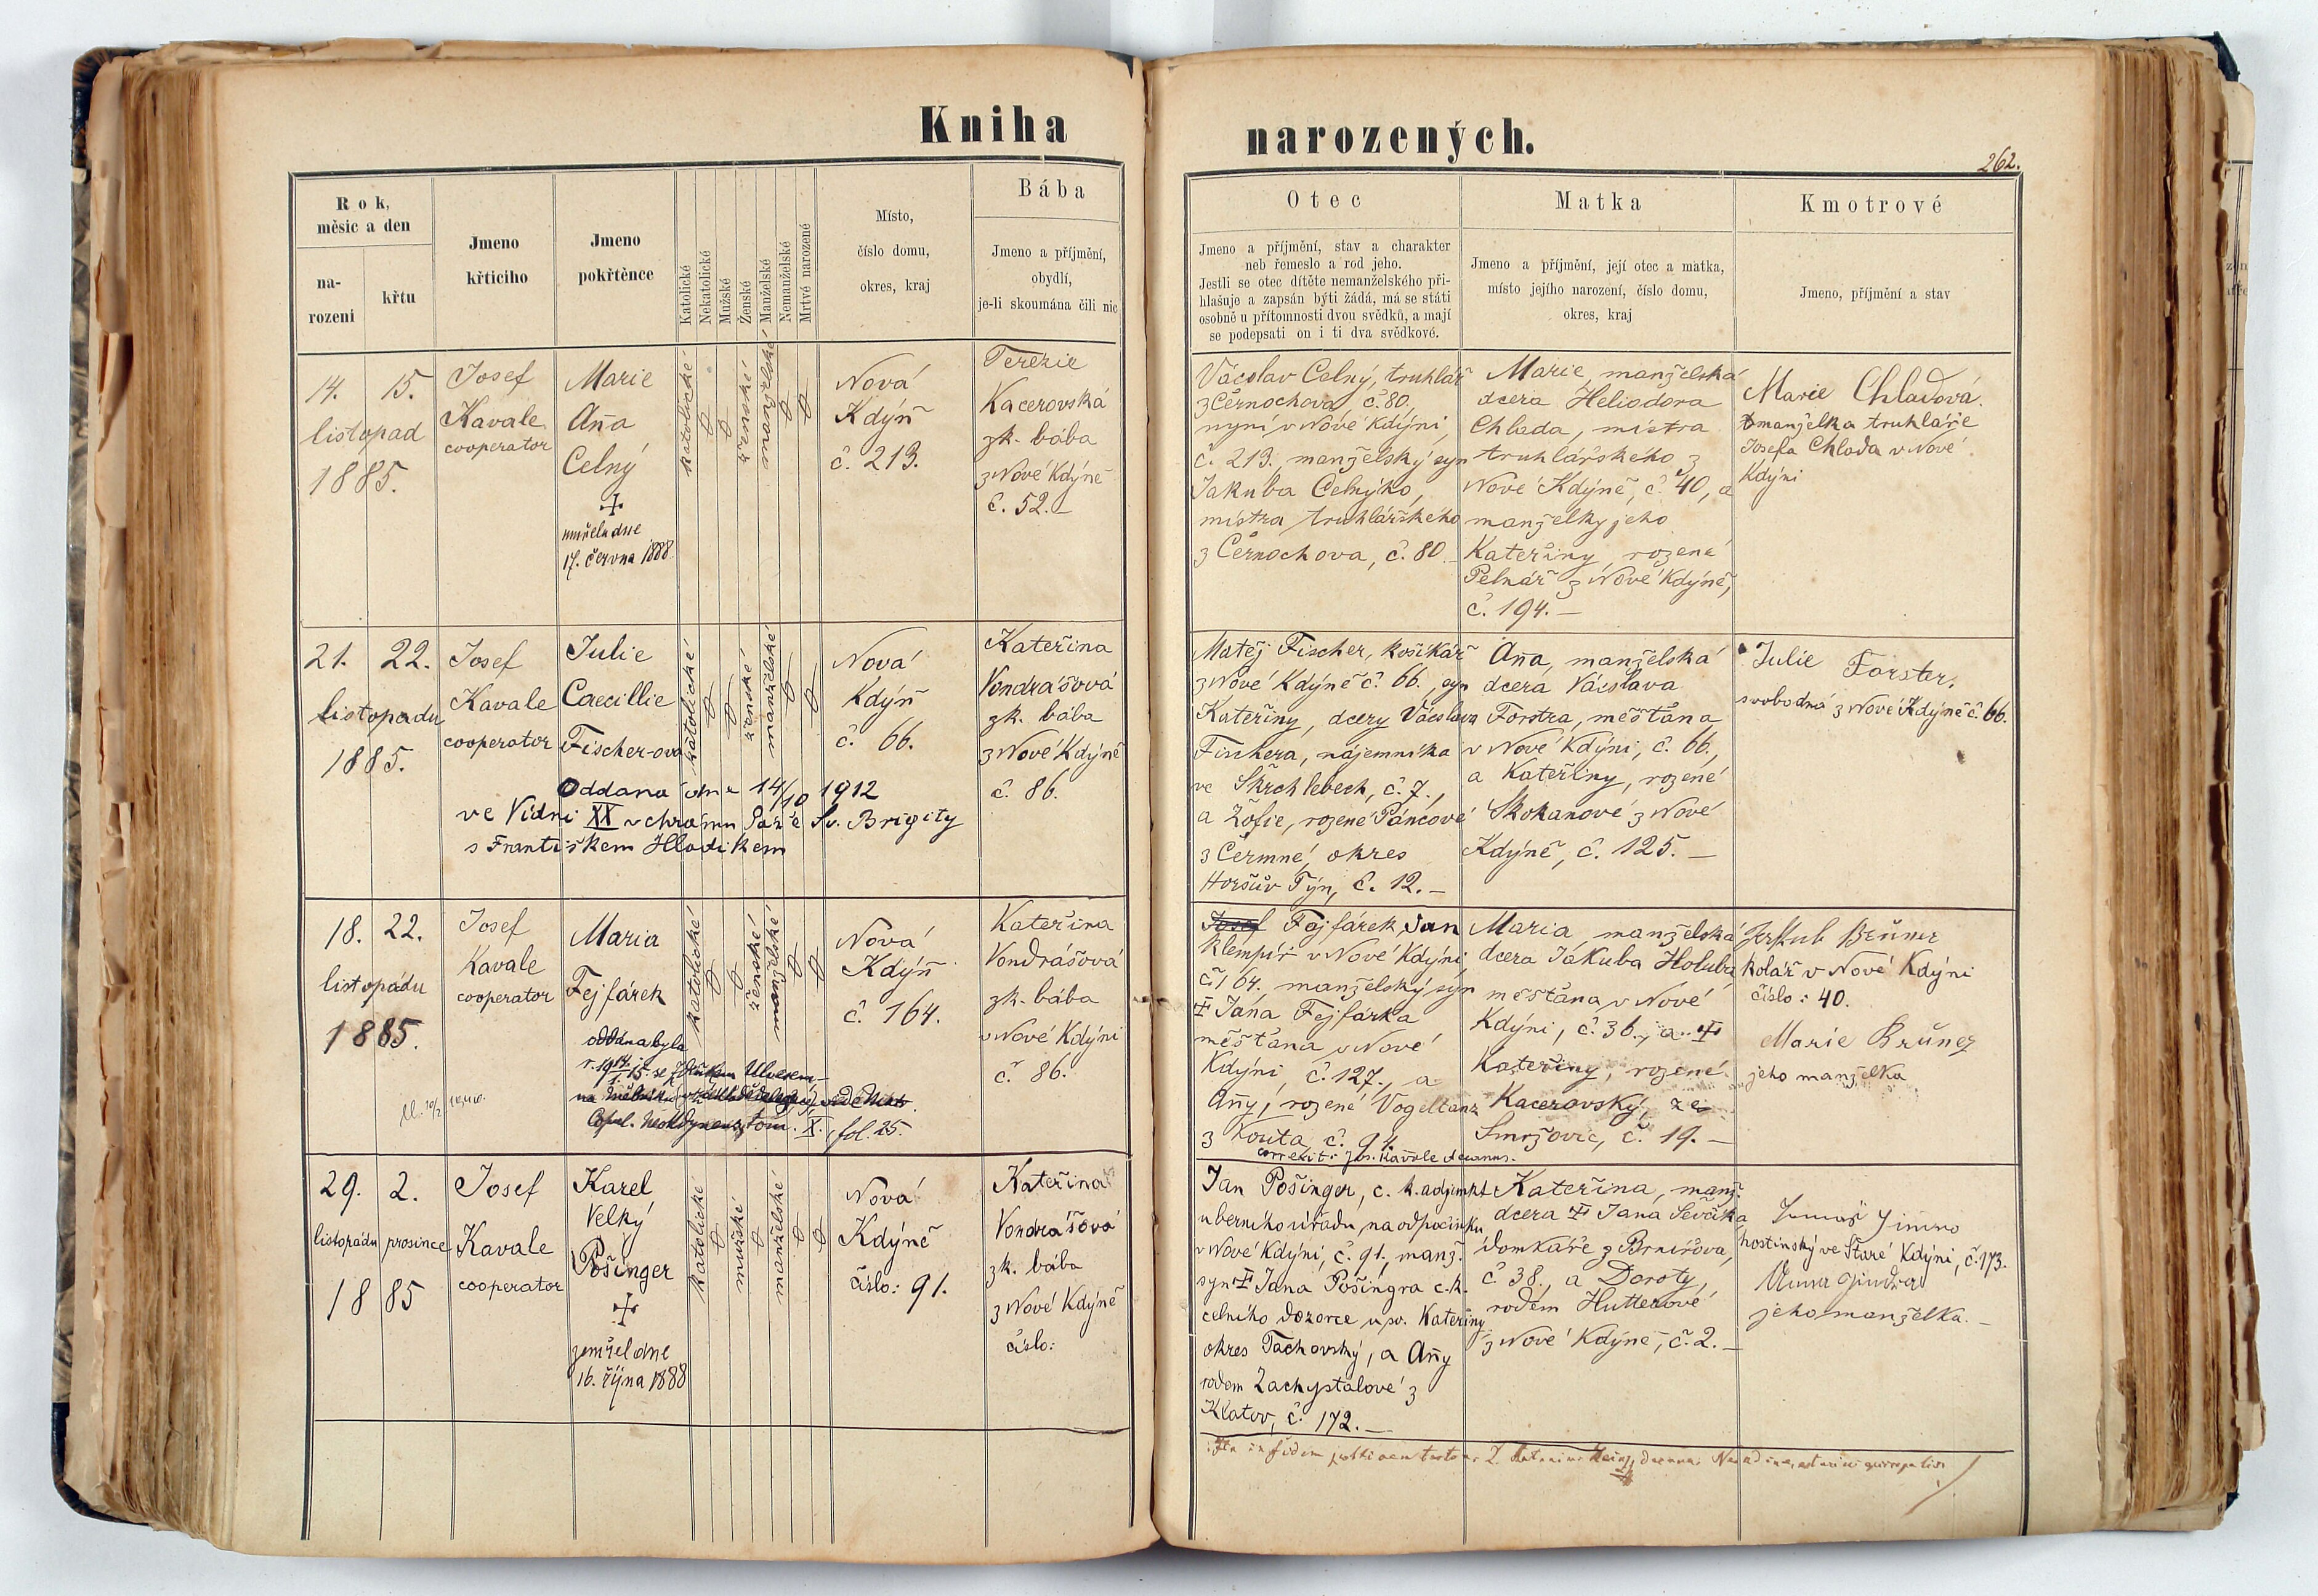 Kniha
narozených.
262.
Rok,
měsic a den
na-
rozeni
křtu
Jmeno
křticiho
Jmeno
pokřtěnce
Katolické
Nekatolické
Mužské
Ženské
Manželské
Nemanželské
Mrtvé narozené
Místo,
číslo domu,
okres, kraj
Bába
Jmeno a příjmění,
obydlí,
je-li skoumána čili nic
Otec
Jmeno a příjmění, stav a charakter
neb řemeslo a rod jeho.
Jestli se otec dítěte nemanželského při-
hlašuje a zapsán býti žádá, má se státi
osobně u přítomnosti dvou svědků, a mají
se podepsati on i ti dva svědkové.
Matka
Jmeno a příjmění, její otec a matka,
místo jejího narození, číslo domu,
okres, kraj
Kmotrové
Jmeno, příjmění a stav
14. 15.
listopad
1885.
Josef
Kavale
cooperator
Marie
Aña
Celný
umřela dne
17. června 1888.
katolické
ženské
manželské
Nová
Kdýň
č. 213.
Terezie
Kacerovská
zk. bába
z Nové Kdýně
č. 52.
Václav Celný, truhlář
z Černochova č. 80.
nyní v Nové Kdýni,
č. 213. manželský syn
Jakuba Celnýho,
mistra truhlářského
z Černochova, č. 80.
Marie, manželská
dcera Heliodora
Chlada, mistra
truhlářského z
Nové Kdýně, č. 40, a
manželky jeho
Kateřiny, rozené
Pelnář z Nové Kdýně,
č. 194.
Marie Chladová.
manželka truhláře
Josefa Chlada v Nové
Kdýni
21. 22.
listopadu
1885.
Josef
Kavale
cooperator
Julie
Caecillie
Fischer-ova
Oddaná dne 14/10 1912
ve Vídni XX v chrámu Páně Sv. Brigity
s Františkem Hladíkem
katolické
ženské
manželské
Nová
Kdýň
č. 66.
Kateřina
Vondrášová
zk. bába
z Nové Kdýně
č. 86.
Matěj Fischer, košikář
z Nové Kdýně č. 66., syn
Kateřiny, dcery Václava
Fischera, nájemníka
ve Skrchlebech, č. 7.,
a Žofie, rozené Páncové
z Čermné, okres
Horšův Týn, č. 12.
Aña, manželská
dcera Václava
Forstra, měšťána
v Nové Kdýni, č. 66,
a Kateřiny, rozené
Skokanové z Nové
Kdýně, č. 125.
Julie Forster,
svobodná z Nové Kdýně č. 66.
18. 22.
listopádu
1885.
Josef
Kavale
cooperator
Maria
Fejfárek
oddána byla
vide Matr.
Copul. Neokdynens. tom. X., fol. 25.
katolické
ženské
manželské
Nová
Kdýň
č. 164.
Kateřina
Vondrášová
zk. bába
v Nové Kdýni
č. 86.
Josef Fejfárek Jan
klempíř v Nové Kdýni,
č. 164., manželský syn
Jána Fejfárka
měšťána v Nové
Kdýni, č. 127., a
Añy, rozené Vogeltanz
z Kouta, č. 94.
correxit: Jos. Kavale decanus.
Maria manželská
dcera Jákuba Holuba,
měšťána v Nové
Kdýni, č. 36., a
Kateřiny, rozené
Kacerovský, ze
Smržovic, č. 19.
Jakub Brůner
kolář v Nové Kdýni
číslo: 40.
Marie Brůner
jeho manželka
29. 2.
listopádu prosince
1885
Josef
Kavale
cooperator
Karel
Velký
Pošinger
zemřel dne
16. října 1888
katolické
mužské
manželské
Nová
Kdýně
číslo: 91.
Kateřina
Vondrášová
zk. bába
z Nové Kdýně
číslo:
Jan Pošinger, c. k. adjunkt
u berního úřadu, na odpočinku
v Nové Kdýni, č. 91., manž.
syn Jana Pošingra c. k.
celního dozorce u sv. Kateřiny
okres Tachovský, a Añy
rodem Zachystalové z
Klatov, č. 172.
Kateřina, manž.
dcera Jana Ševčíka,
domkáře z Brnířova,
č. 38., a Doroty,
rodem Hutterové
z Nové Kdýně, č. 2.
hostinský ve Staré Kdýni, č. 173.
jeho manželka.